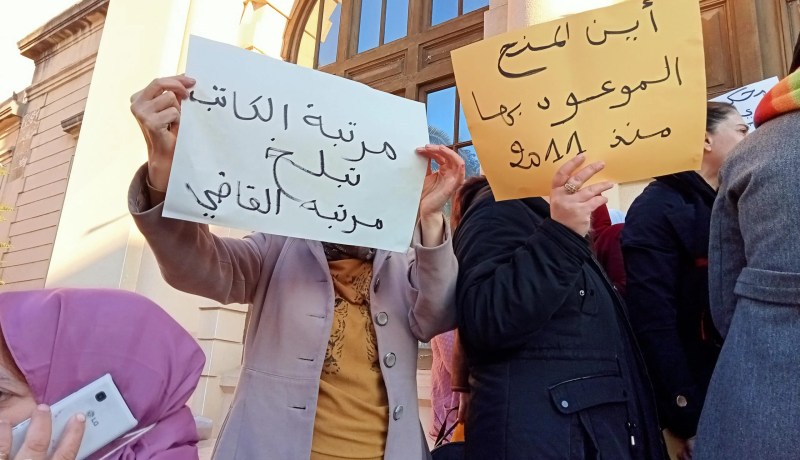 مرتبة الكاتب
تبلغ
مرتبة القاضي
أين المنح
الموعود بها
منذ 2011
LG